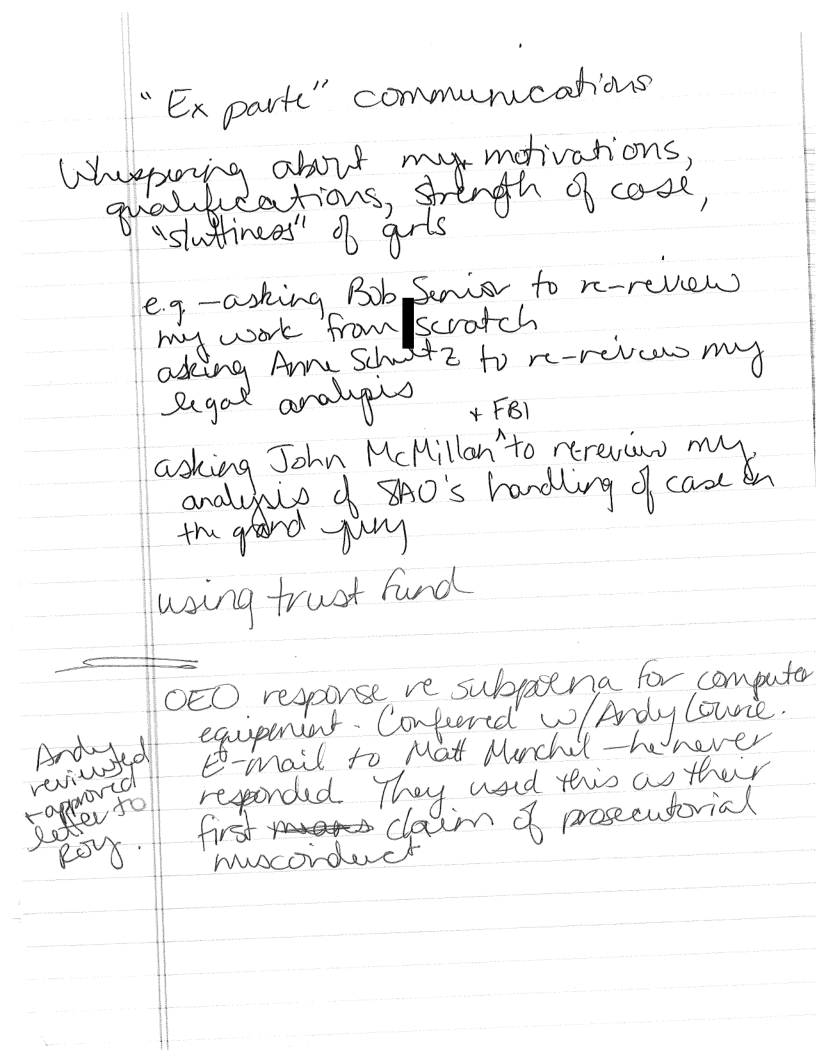 "Ex parte" communications
Whispering about my motivations,
qualifications, strength of case,
"sluttiness" of girls
e.g. – asking Bob Senior to re-review
my work from scratch
asking Anne Schultz to re-review my
legal analysis
+ FBI
asking John McMillan ^ to rereview my
analysis of SAO's handling of case in
the grand jury
using trust fund
OEO response re subpoena for computer
equipment. Conferred w/ Andy Lourie.
E-mail to Matt Menchel – he never
responded. They used this as their
first claim of prosecutorial
misconduct
Andy
reviewed
+ approved
letter to
Roy.